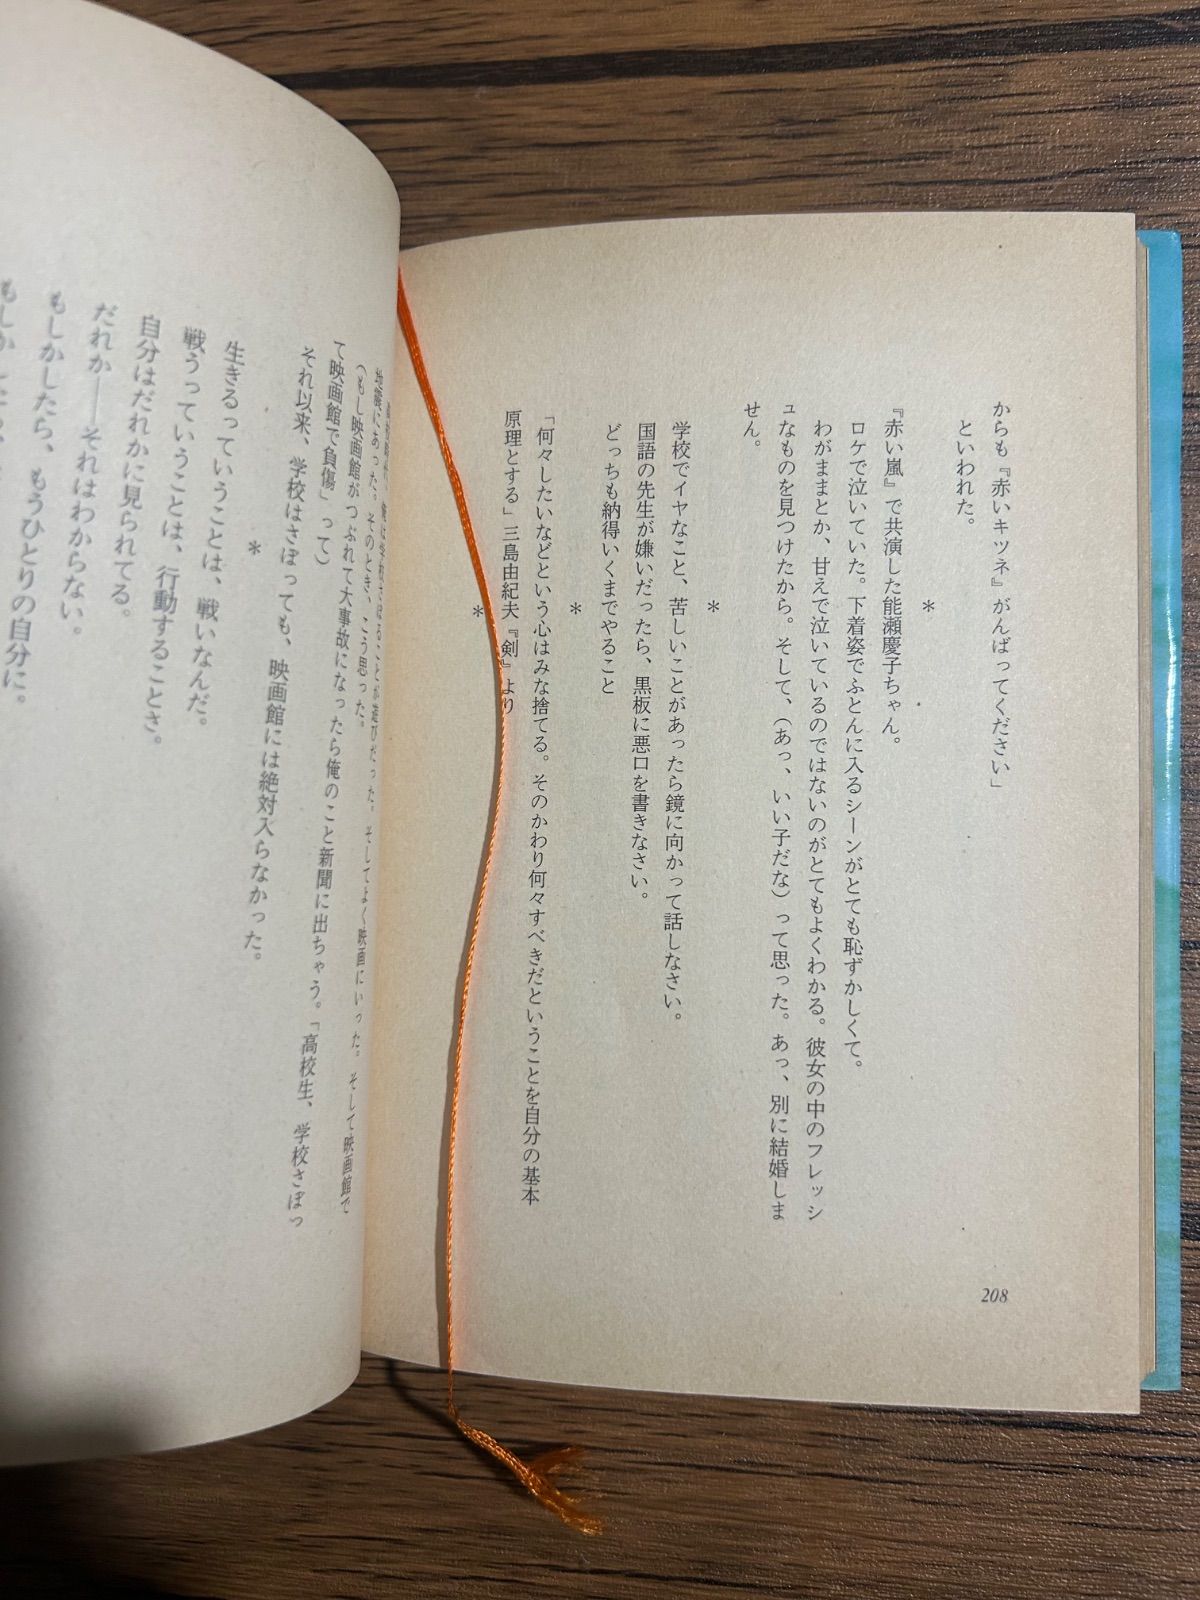 からも『赤いキツネ』がんばってください」
といわれた。
＊
『赤い嵐』で共演した能瀬慶子ちゃん。
ロケで泣いていた。下着姿でふとんに入るシーンがとても恥ずかしくて。
わがままとか、甘えで泣いているのではないのがとてもよくわかる。彼女の中のフレッシ
ュなものを見つけたから。そして、（あっ、いい子だな）って思った。あっ、別に結婚しま
せん。
＊
学校でイヤなこと、苦しいことがあったら鏡に向かって話しなさい。
国語の先生が嫌いだったら、黒板に悪口を書きなさい。
どっちも納得いくまでやること
＊
「何々したいなどという心はみな捨てる。そのかわり何々すべきだということを自分の基本
原理とする」三島由紀夫『剣』より
＊
208
俺は学校さぼることが遊びだった。そしてよく映画にいった。そして映画館で
地震にあった。そのとき、こう思った。
（もし映画館がつぶれて大事故になったら俺のこと新聞に出ちゃう。「高校生、学校さぼっ
て映画館で負傷」って）
それ以来、学校はさぼっても、映画館には絶対入らなかった。
＊
生きるっていうことは、戦いなんだ。
戦うっていうことは、行動することさ。
自分はだれかに見られてる。
だれか――それはわからない。
もしかしたら、もうひとりの自分に。